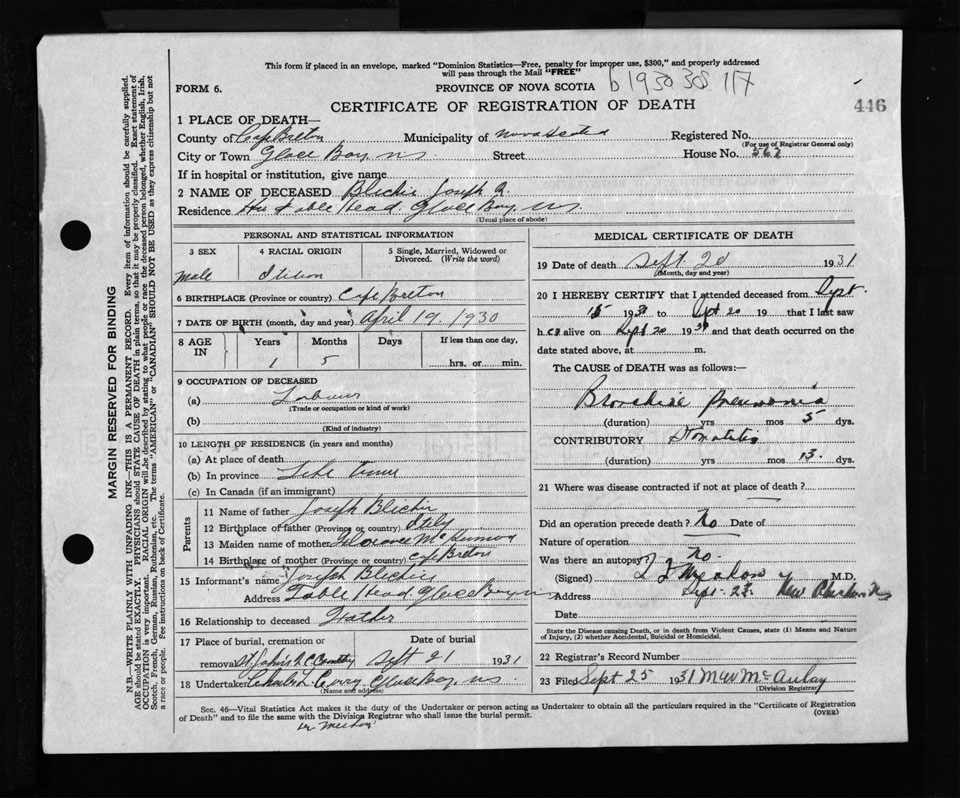 This form if placed in an envelope, marked "Dominion Statistics—Free, penalty for improper use, $300," and properly addressed
will pass through the Mail "FREE"
FORM 6.
PROVINCE OF NOVA SCOTIA b 1930 308 117
CERTIFICATE OF REGISTRATION OF DEATH
446
1 PLACE OF DEATH—
County of Cape Breton Municipality of Nova Scotia Registered No.
(For use of Registrar General only)
City or Town Glace Bay, NS. Street House No. 562
If in hospital or institution, give name
2 NAME OF DECEASED Blichie Joseph A.
Residence Table Head Glace Bay, NS
(Usual place of abode)
PERSONAL AND STATISTICAL INFORMATION
3 SEX 4 RACIAL ORIGIN 5 Single, Married, Widowed or Divorced. (Write the word)
male
6 BIRTHPLACE (Province or country) Cape Breton
7 DATE OF BIRTH (month, day and year) April 19, 1930
8 AGE IN Years Months Days If less than one day,
1 5 hrs. or min.
9 OCCUPATION OF DECEASED
(a)
(Trade or occupation or kind of work)
(b)
(Kind of industry)
10 LENGTH OF RESIDENCE (in years and months)
(a) At place of death
(b) In province Life time
(c) In Canada (if an immigrant)
Parents
11 Name of father Joseph Blichie
12 Birthplace of father (Province or country) Italy
13 Maiden name of mother Florence McKinnon
14 Birthplace of mother (Province or country) Cape Breton
15 Informant's name Joseph Blichie
Address Table Head Glace Bay NS
16 Relationship to deceased Father
17 Place of burial, cremation or Date of burial
removal St. John's R.C. Cemetery Sept 21 1931
18 Undertaker Charles L. Curry Glace Bay, NS
(Name and address)
MEDICAL CERTIFICATE OF DEATH
19 Date of death Sept 20 1931
(Month, day and year)
20 I HEREBY CERTIFY that I attended deceased from Sept.
15 1931 to Sept 20 19 that I last saw
h alive on Sept 20 1931 and that death occurred on the
date stated above, at m.
The CAUSE of DEATH was as follows:—
Bronchial pneumonia
(duration) yrs mos 5 dys.
CONTRIBUTORY Stomatitis
(duration) yrs mos 13 dys.
21 Where was disease contracted if not at place of death?
Did an operation precede death? No Date of
Nature of operation
Was there an autopsy? No.
(Signed) M.D.
Address Sept. 23. New Aberdeen NS
Date
State the Disease causing Death, or in death from Violent Causes, state (1) Means and Nature
of Injury, (2) whether Accidental, Suicidal or Homicidal.
22 Registrar's Record Number
23 Filed Sept 25 1931 M W McAulay
(Division Registrar)
Sec. 46—Vital Statistics Act makes it the duty of the Undertaker or person acting as Undertaker to obtain all the particulars required in the "Certificate of Registration
of Death" and to file the same with the Division Registrar who shall issue the burial permit. (OVER)
MARGIN RESERVED FOR BINDING
N.B.—WRITE PLAINLY WITH UNFADING INK—THIS IS A PERMANENT RECORD. Every item of information should be carefully supplied.
AGE should be stated EXACTLY. PHYSICIANS should STATE CAUSE OF DEATH in plain terms, so that it may be properly classified. Exact statement of
OCCUPATION is very important. RACIAL ORIGIN will be described by stating to what people or race the deceased person belonged, whether English, Irish,
Scotch, French, German, Russian, Ruthenian, etc. The terms "AMERICAN" or "CANADIAN" SHOULD NOT BE USED as they express citizenship but not
a race or people. Fee instructions on back of Certificate.